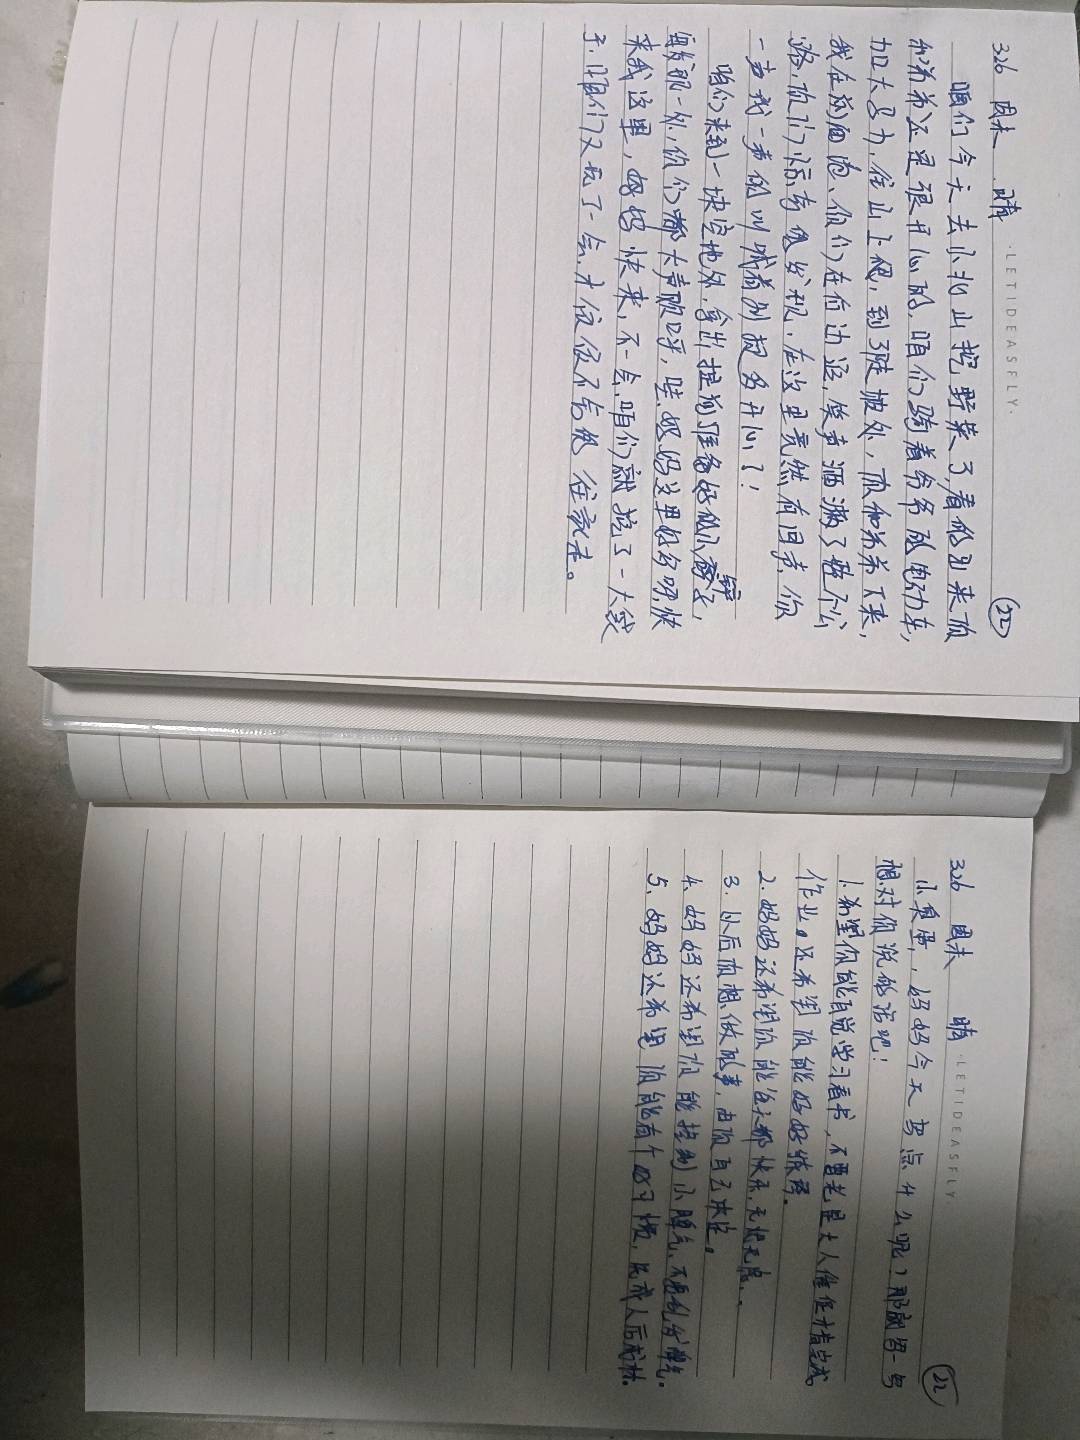 326 周末 晴 22
·LETIDEASFLY·
咱们今天去小北山挖野菜了,看的出来你
和弟弟还是很开心的,咱们骑着爷爷的电动车,
加大马力,往山上爬,到了陡坡处,你和弟弟下来,
我在前面跑、你们在后边追,笑声洒满了整个公
路,你们惊奇的发现,在这里竟然有回声,你
一声我一声的叫喊着别提多开心了!
咱们来到一块空地处,拿出提前准备好的小
每发现一处,你们都大声欢呼,哇,妈妈这里好多呀快
来我这里,妈妈快来,不一会,咱们就挖了一大袋
子,咱们又玩了一会,才依依不舍地往家走。
326 周末 晴 22
·LETIDEASFLY·
妈妈今天写点什么呢?那就写一写
想对你说的话吧!
1.希望你能自觉学习看书,不要老是大人催促才肯完成
作业。还希望你能好好练琴。
2.妈妈还希望你能每天都快乐,无忧无虑..
3.以后你想做的事,由你自己决定。
4.妈妈还希望你能控制小脾气、不要乱发脾气.
5.妈妈还希望你能有个好习惯,先成人后成材.